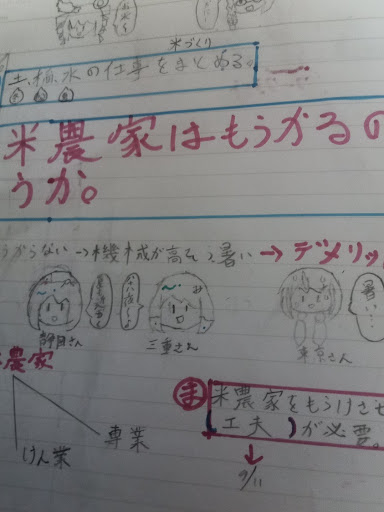 米づくり
土、苗、水の仕事をまとめる。
米農家はもうかるの
うか。
うからない→機械が高そう、暑い→デメリッ
静岡さん
三重さん
東京さん
暑い…
農家
けん業
専業
ま 米農家をもうけさせ
(工夫)が必要。
↓
9/11